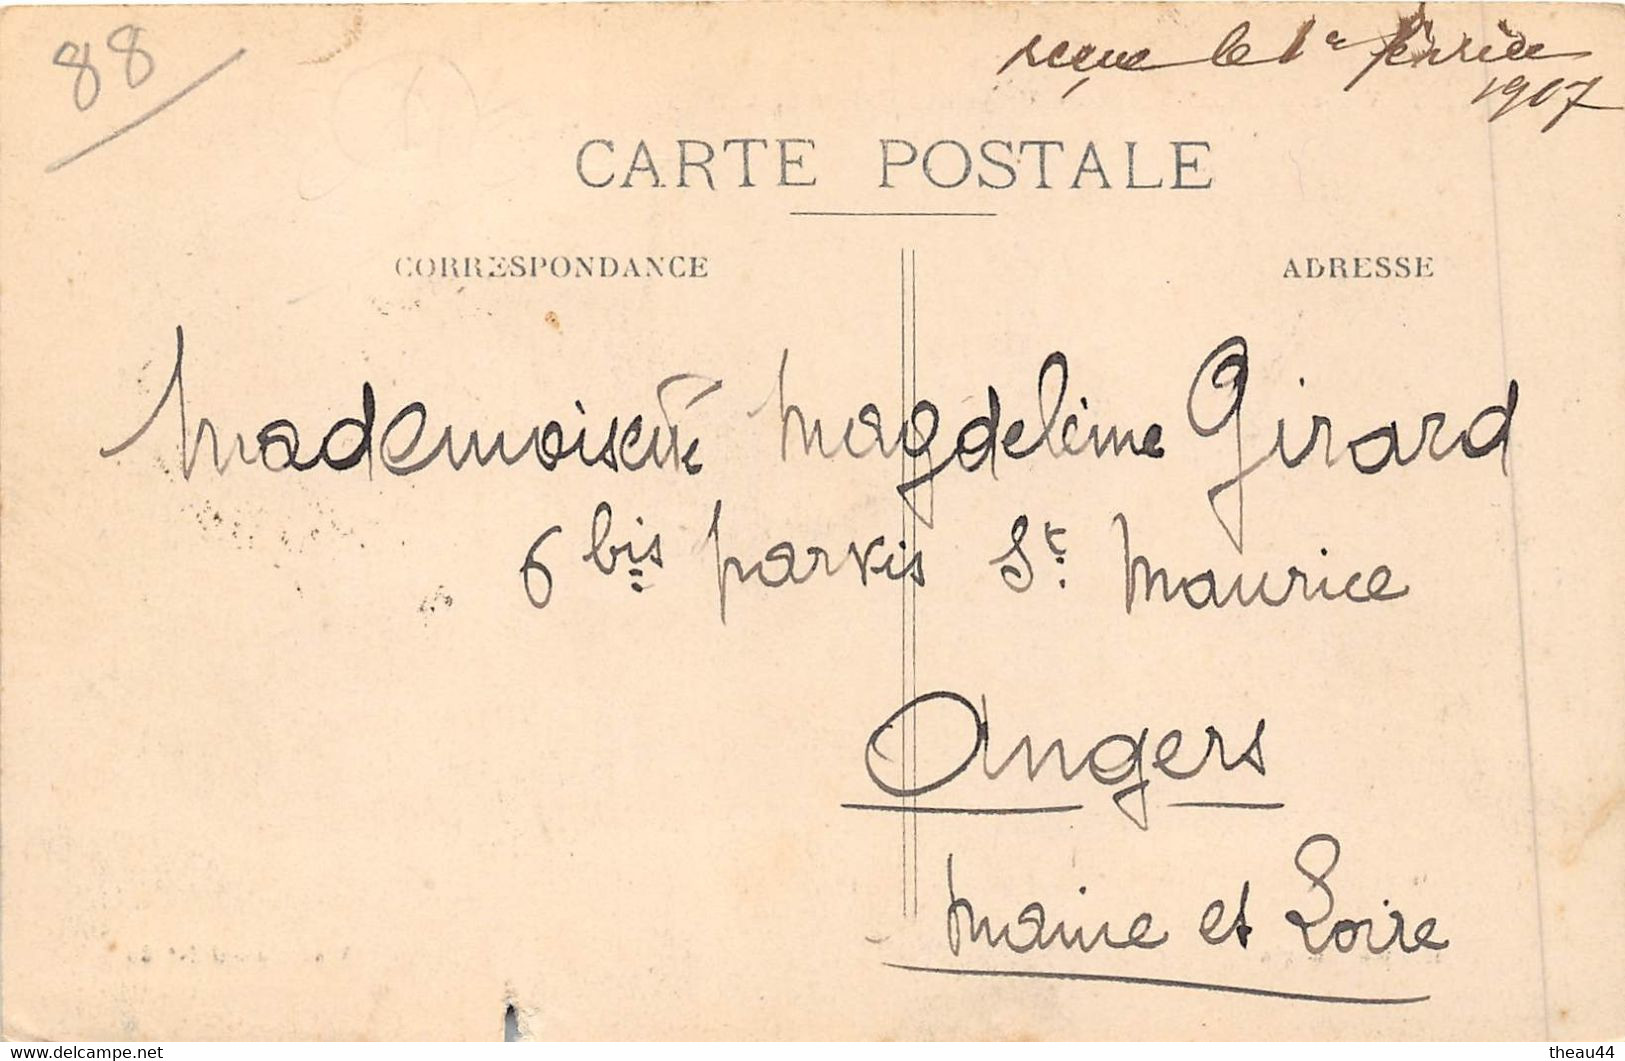 88
reçue le 1er février
1907
CARTE POSTALE
CORRESPONDANCE
ADRESSE
Mademoiselle Magdeleine Girard
6 bis parvis St. Maurice
Angers
Maine et Loire
www.delcampe.net
theau44